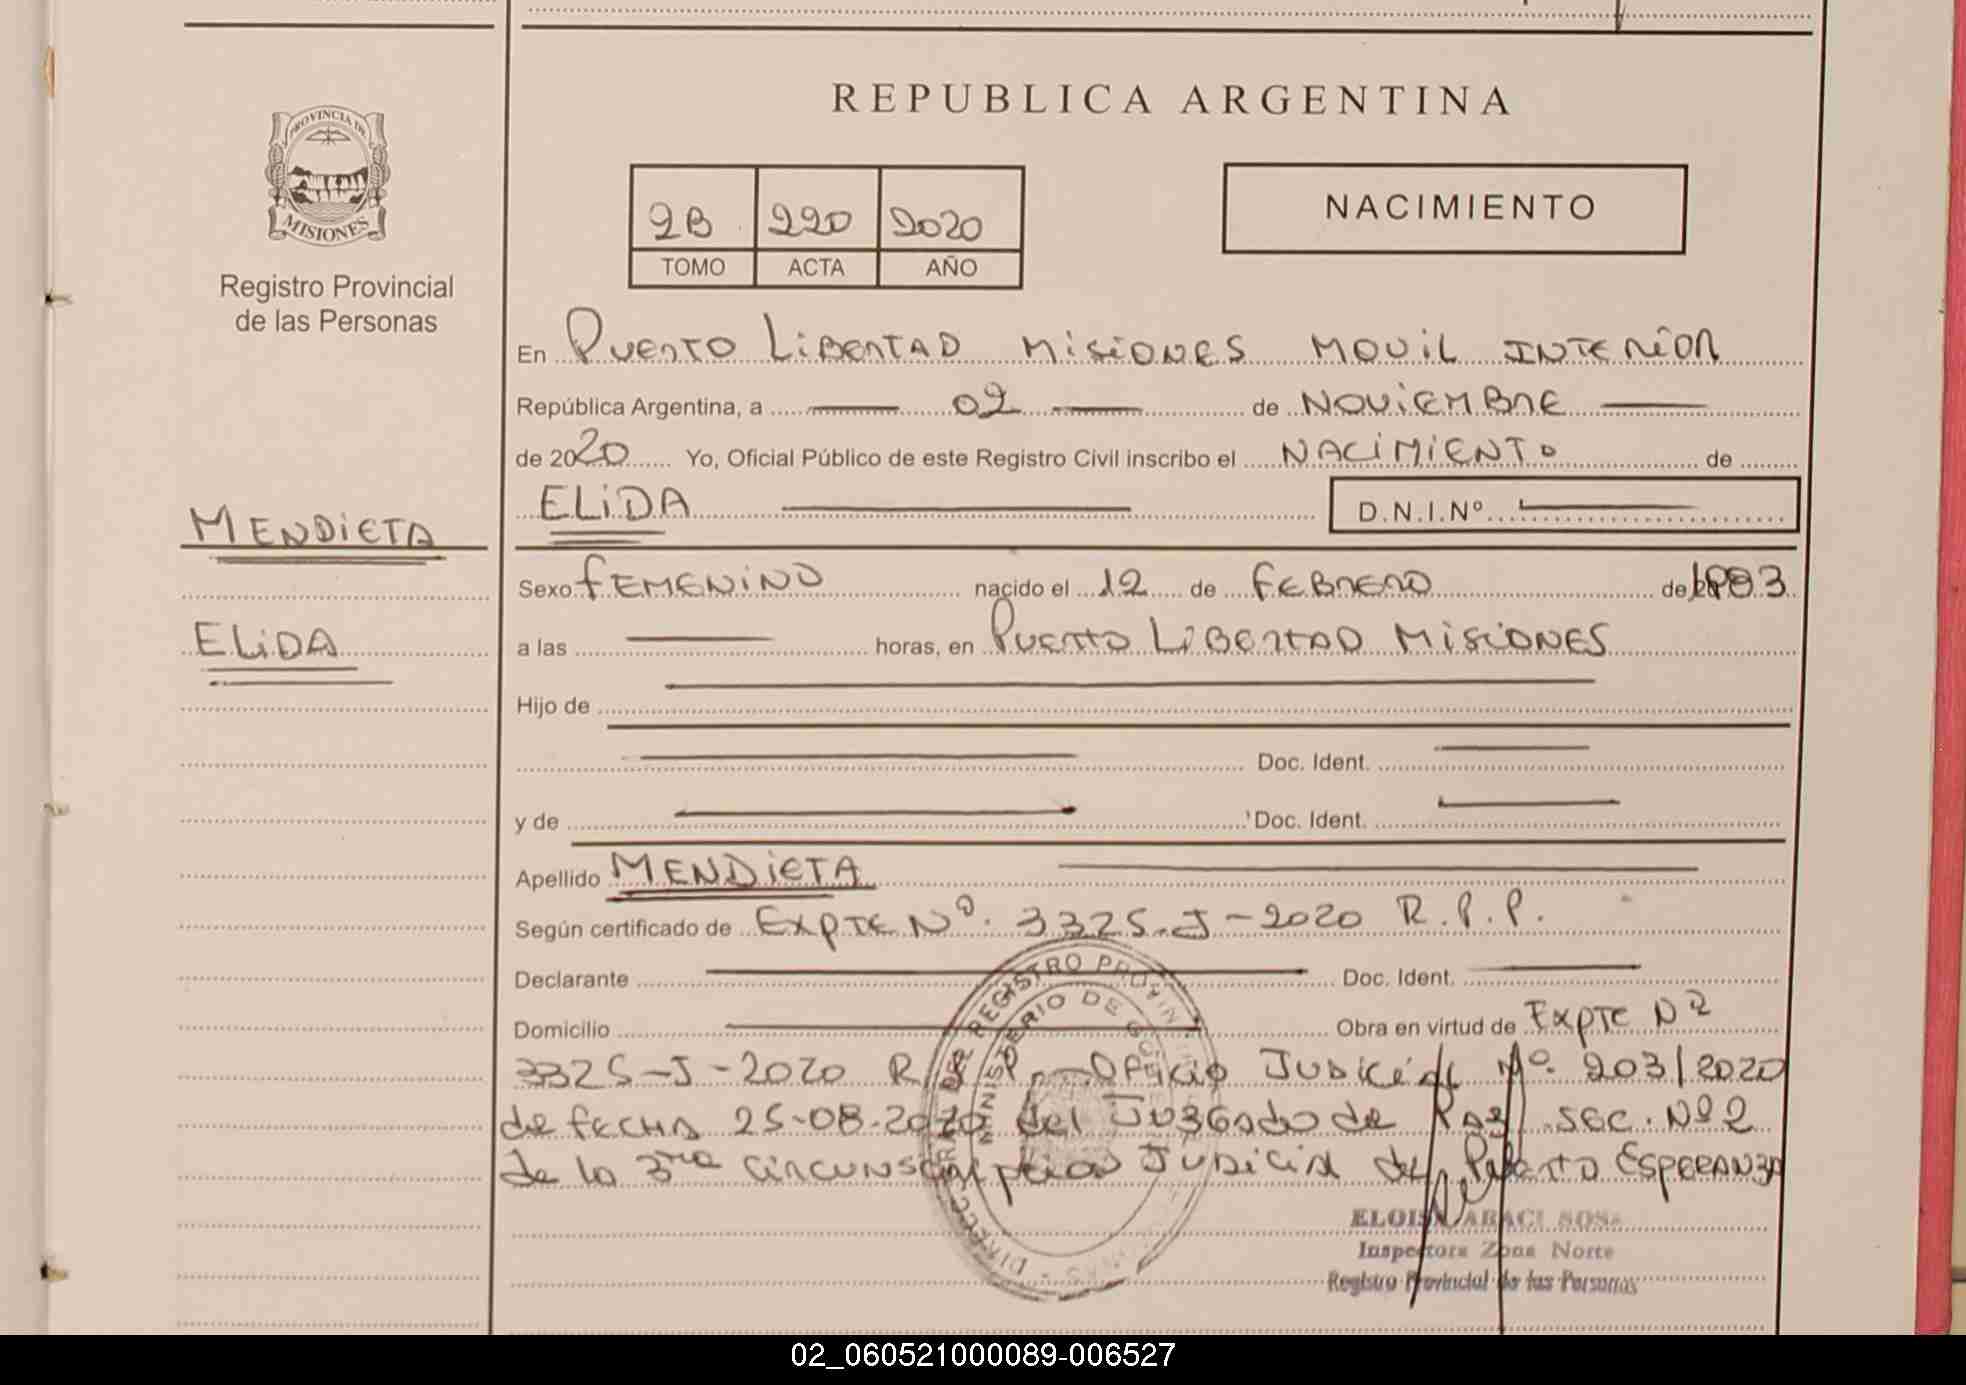 REPUBLICA ARGENTINA
PROVINCIA DE
MISIONES
Registro Provincial
de las Personas
2B 220 2020
TOMO ACTA AÑO
NACIMIENTO
En PUERTO LIBERTAD MISIONES MOVIL INTERIOR
República Argentina, a 02 de NOVIEMBRE
de 2020 Yo, Oficial Público de este Registro Civil inscribo el NACIMIENTO de
ELIDA D.N.I.Nº
MENDIETA
ELIDA
Sexo FEMENINO nacido el 12 de FEBRERO de
a las horas, en PUERTO LIBERTAD MISIONES
Hijo de
Doc. Ident.
y de Doc. Ident.
Apellido MENDIETA
Según certificado de EXPTE Nº. 3325-J-2020 R.P.P.
Declarante Doc. Ident.
Domicilio Obra en virtud de EXPTE Nº
3325-J-2020 R.P.P. OFICIO JUDICIAL Nº. 203/2020
de FECHA 25-08-2020 del JUZGADO de PAZ SEC. Nº 2
de la 3ra CIRCUNSCRIPCION JUDICIAL de PUERTO ESPERANZA
REGISTRO PROVIN
MINISTERIO DE
Inspectora Zona Norte
Registro Provincial de las Personas
02_060521000089-006527